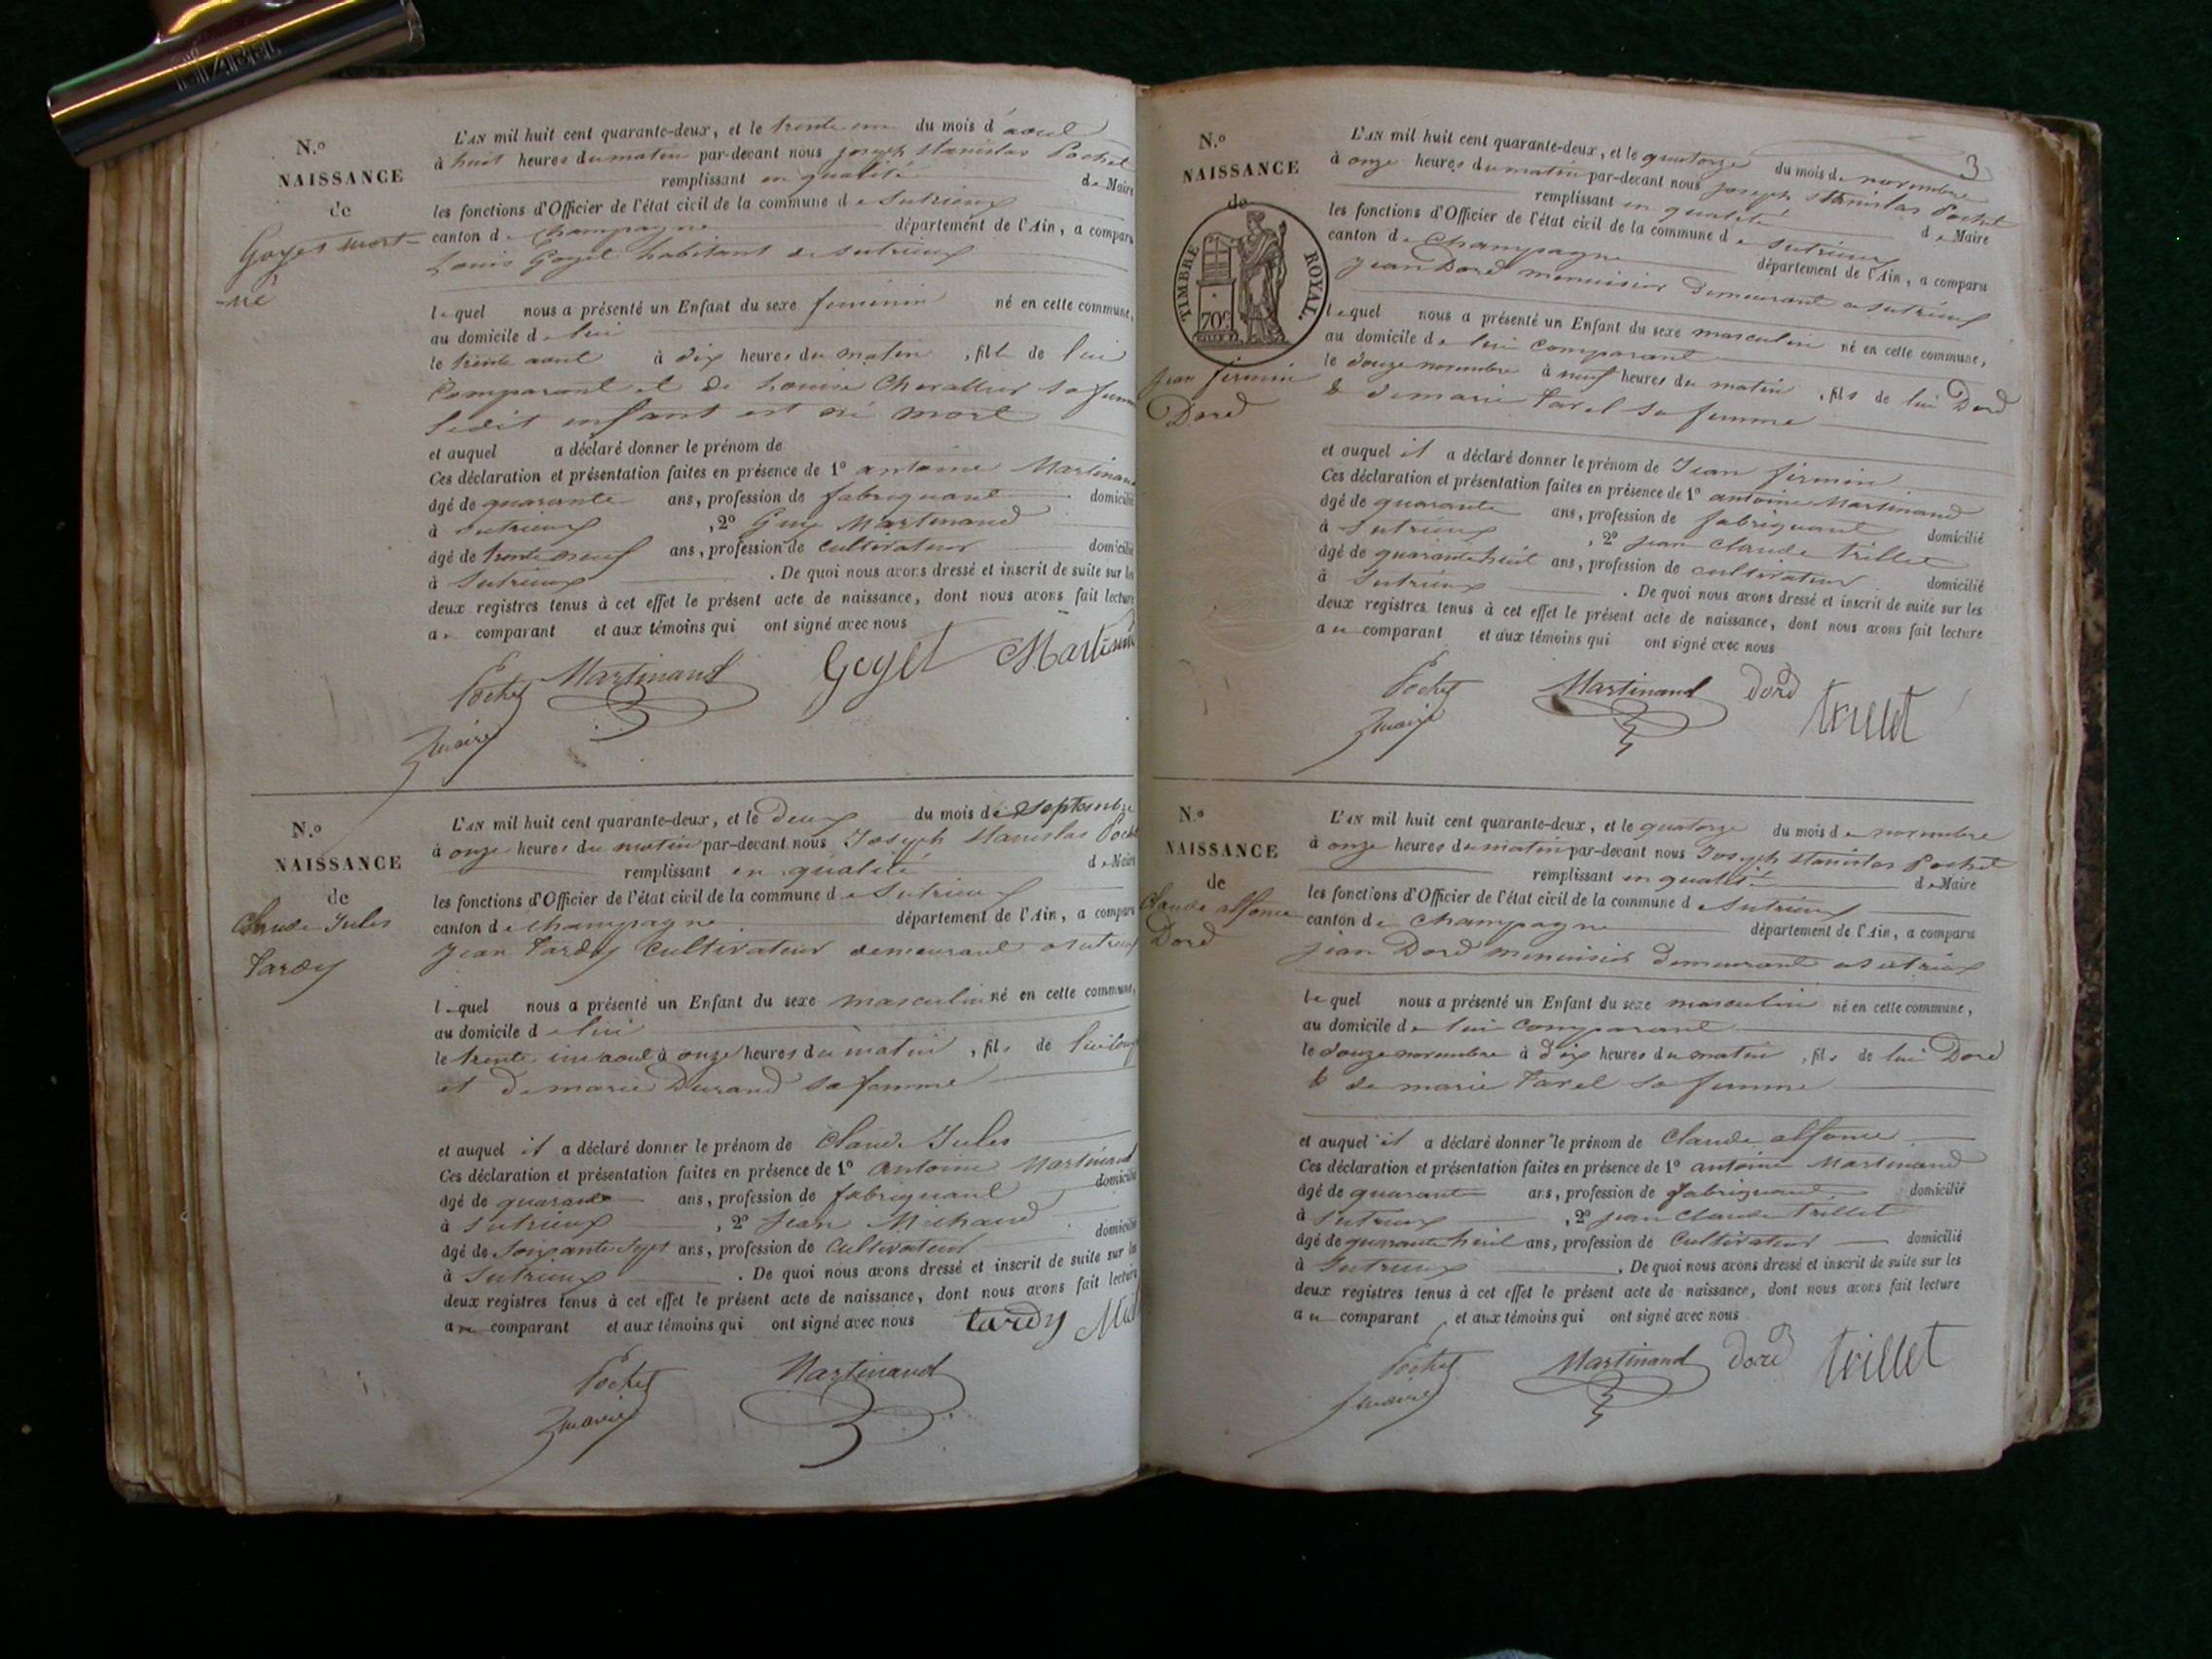 N.º
NAISSANCE
de
Goyet mort-
-né
L'AN mil huit cent quarante-deux, et le trente un du mois d'aout
à huit heures du matin par-devant nous joseph stanislas Pochet
remplissant en qualité de Maire
les fonctions d'Officier de l'état civil de la commune de Sutrieux
canton de Champagne département de l'Ain, a comparu
Louis Goyet habitant a sutrieux
lequel nous a présenté un Enfant du sexe feminin né en cette commune,
au domicile de lui
le trente aout à dix heures du matin, fille de lui
Comparant et de Louise Chevallier sa femme
ledit enfant est né mort
et auquel a déclaré donner le prénom de
Ces déclaration et présentation faites en présence de 1º antoine Martinand
âgé de quarante ans, profession de fabriquant domicilié
à sutrieux, 2º Guy Martinand
âgé de trente neuf ans, profession de cultivateur domicilié
à Sutrieux. De quoi nous avons dressé et inscrit de suite sur les
deux registres tenus à cet effet le présent acte de naissance, dont nous avons fait lecture
au comparant et aux témoins qui ont signé avec nous
Pochet Martinand Goyet Martinand
maire
N.º
NAISSANCE
de
Claude Jules
Tardy
L'AN mil huit cent quarante-deux, et le deux du mois de septembre
à onze heures du matin par-devant nous Joseph stanislas Pochet
remplissant en qualité de Maire
les fonctions d'Officier de l'état civil de la commune de Sutrieux
canton de champagne département de l'Ain, a comparu
jean Tardy cultivateur demeurant a sutrieux
lequel nous a présenté un Enfant du sexe masculin né en cette commune,
au domicile de lui
le trente un aout à onze heures du matin, fils de lui
et de marie Durand sa femme
et auquel il a déclaré donner le prénom de Claude Jules
Ces déclaration et présentation faites en présence de 1º Antoine Martinand
âgé de quarante ans, profession de fabriquant domicilié
à Sutrieux, 2º jean Michaud
âgé de soixante sept ans, profession de cultivateur domicilié
à Sutrieux. De quoi nous avons dressé et inscrit de suite sur les
deux registres tenus à cet effet le présent acte de naissance, dont nous avons fait lecture
au comparant et aux témoins qui ont signé avec nous tardy Mich
Pochet Martinand
maire
3
N.º
NAISSANCE
de
TIMBRE ROYAL.
70c
jean firmin
Dord
L'AN mil huit cent quarante-deux, et le quatorze du mois de novembre
à onze heures du matin par-devant nous joseph stanislas Pochet
remplissant en qualité de Maire
les fonctions d'Officier de l'état civil de la commune de sutrieux
canton de Champagne département de l'Ain, a comparu
jean Dord menuisier demeurant a sutrieux
lequel nous a présenté un Enfant du sexe masculin né en cette commune,
au domicile de lui comparant
le douze novembre à neuf heures du matin, fils de lui Dord
& de marie tavel sa femme
et auquel il a déclaré donner le prénom de Jean firmin
Ces déclaration et présentation faites en présence de 1º antoine Martinand
âgé de quarante ans, profession de fabriquant domicilié
à Sutrieux, 2º jean claude trillet
âgé de quarante huit ans, profession de cultivateur domicilié
à Sutrieux. De quoi nous avons dressé et inscrit de suite sur les
deux registres tenus à cet effet le présent acte de naissance, dont nous avons fait lecture
au comparant et aux témoins qui ont signé avec nous
Pochet Martinand dord trillet
maire
N.º
NAISSANCE
de
Claude alfonce
Dord
L'AN mil huit cent quarante-deux, et le quatorze du mois de novembre
à onze heures du matin par-devant nous Joseph stanislas Pochet
remplissant en qualité de Maire
les fonctions d'Officier de l'état civil de la commune de Sutrieux
canton de Champagne département de l'Ain, a comparu
jean Dord menuisier demeurant a sutrieux
lequel nous a présenté un Enfant du sexe masculin né en cette commune,
au domicile de lui comparant
le douze novembre à dix heures du matin, fils de lui Dord
& de marie tavel sa femme
et auquel il a déclaré donner le prénom de Claude alfonce
Ces déclaration et présentation faites en présence de 1º antoine Martinand
âgé de quarante ans, profession de fabriquant domicilié
à Sutrieux, 2º jean claude trillet
âgé de quarante huit ans, profession de Cultivateur domicilié
à Sutrieux. De quoi nous avons dressé et inscrit de suite sur les
deux registres tenus à cet effet le présent acte de naissance, dont nous avons fait lecture
au comparant et aux témoins qui ont signé avec nous
Pochet Martinand dord trillet
maire